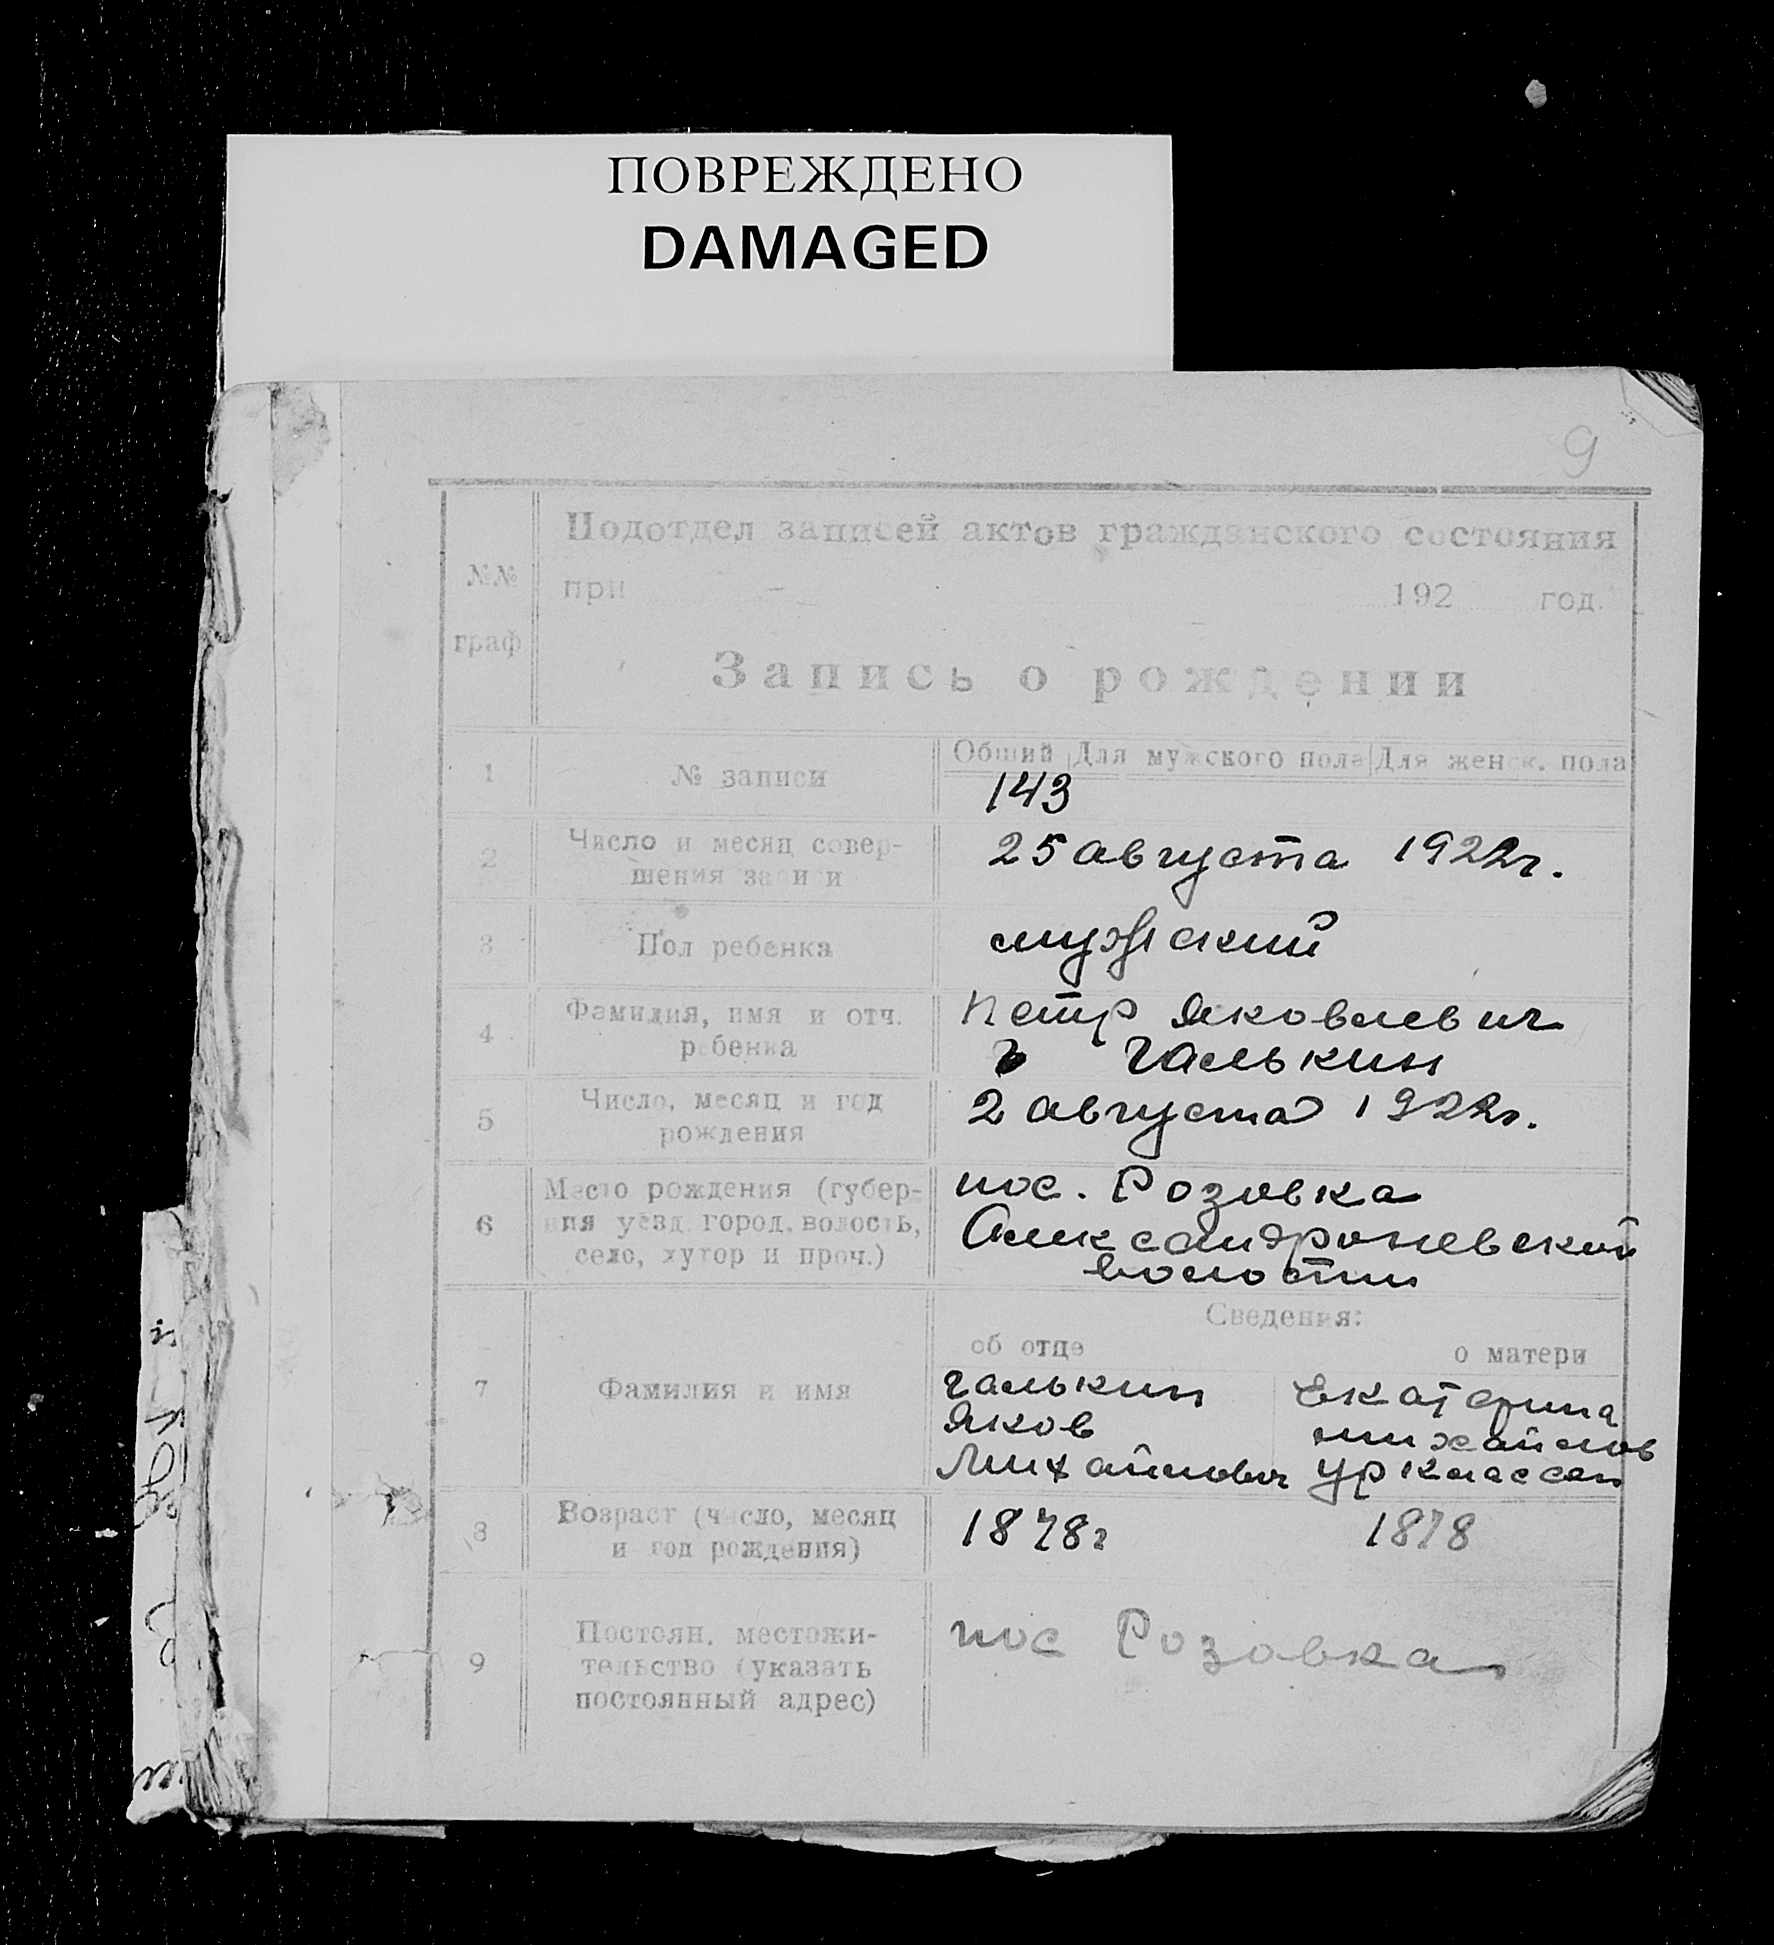 ПОВРЕЖДЕНО
DAMAGED
9
№№ граф
Подотдел записей актов гражданского состояния
при 192 год.
Запись о рождении
1 № записи Общий Для мужского пола Для женск. пола
143
2 Число и месяц совер-
шения записи
25 августа 1922г.
3 Пол ребенка мужский
4 Фамилия, имя и отч.
ребенка
Петр Яковлевич
Галькин
5 Число, месяц и год
рождения
2 августа 1922г.
6 Место рождения (губер-
ния уезд, город, волость,
село, хутор и проч.)
пос. Розовка
Александроневской
волости
Сведения:
об отце о матери
7 Фамилия и имя
Галькин Екатерина
Яков михайлов
Михайлович
8 Возраст (число, месяц
и год рождения)
1878г 1878
9 Постоян. местожи-
тельство (указать
постоянный адрес)
пос Розовка